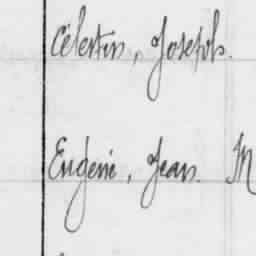 Célestin, Joseph.
Eugène, Jean. M